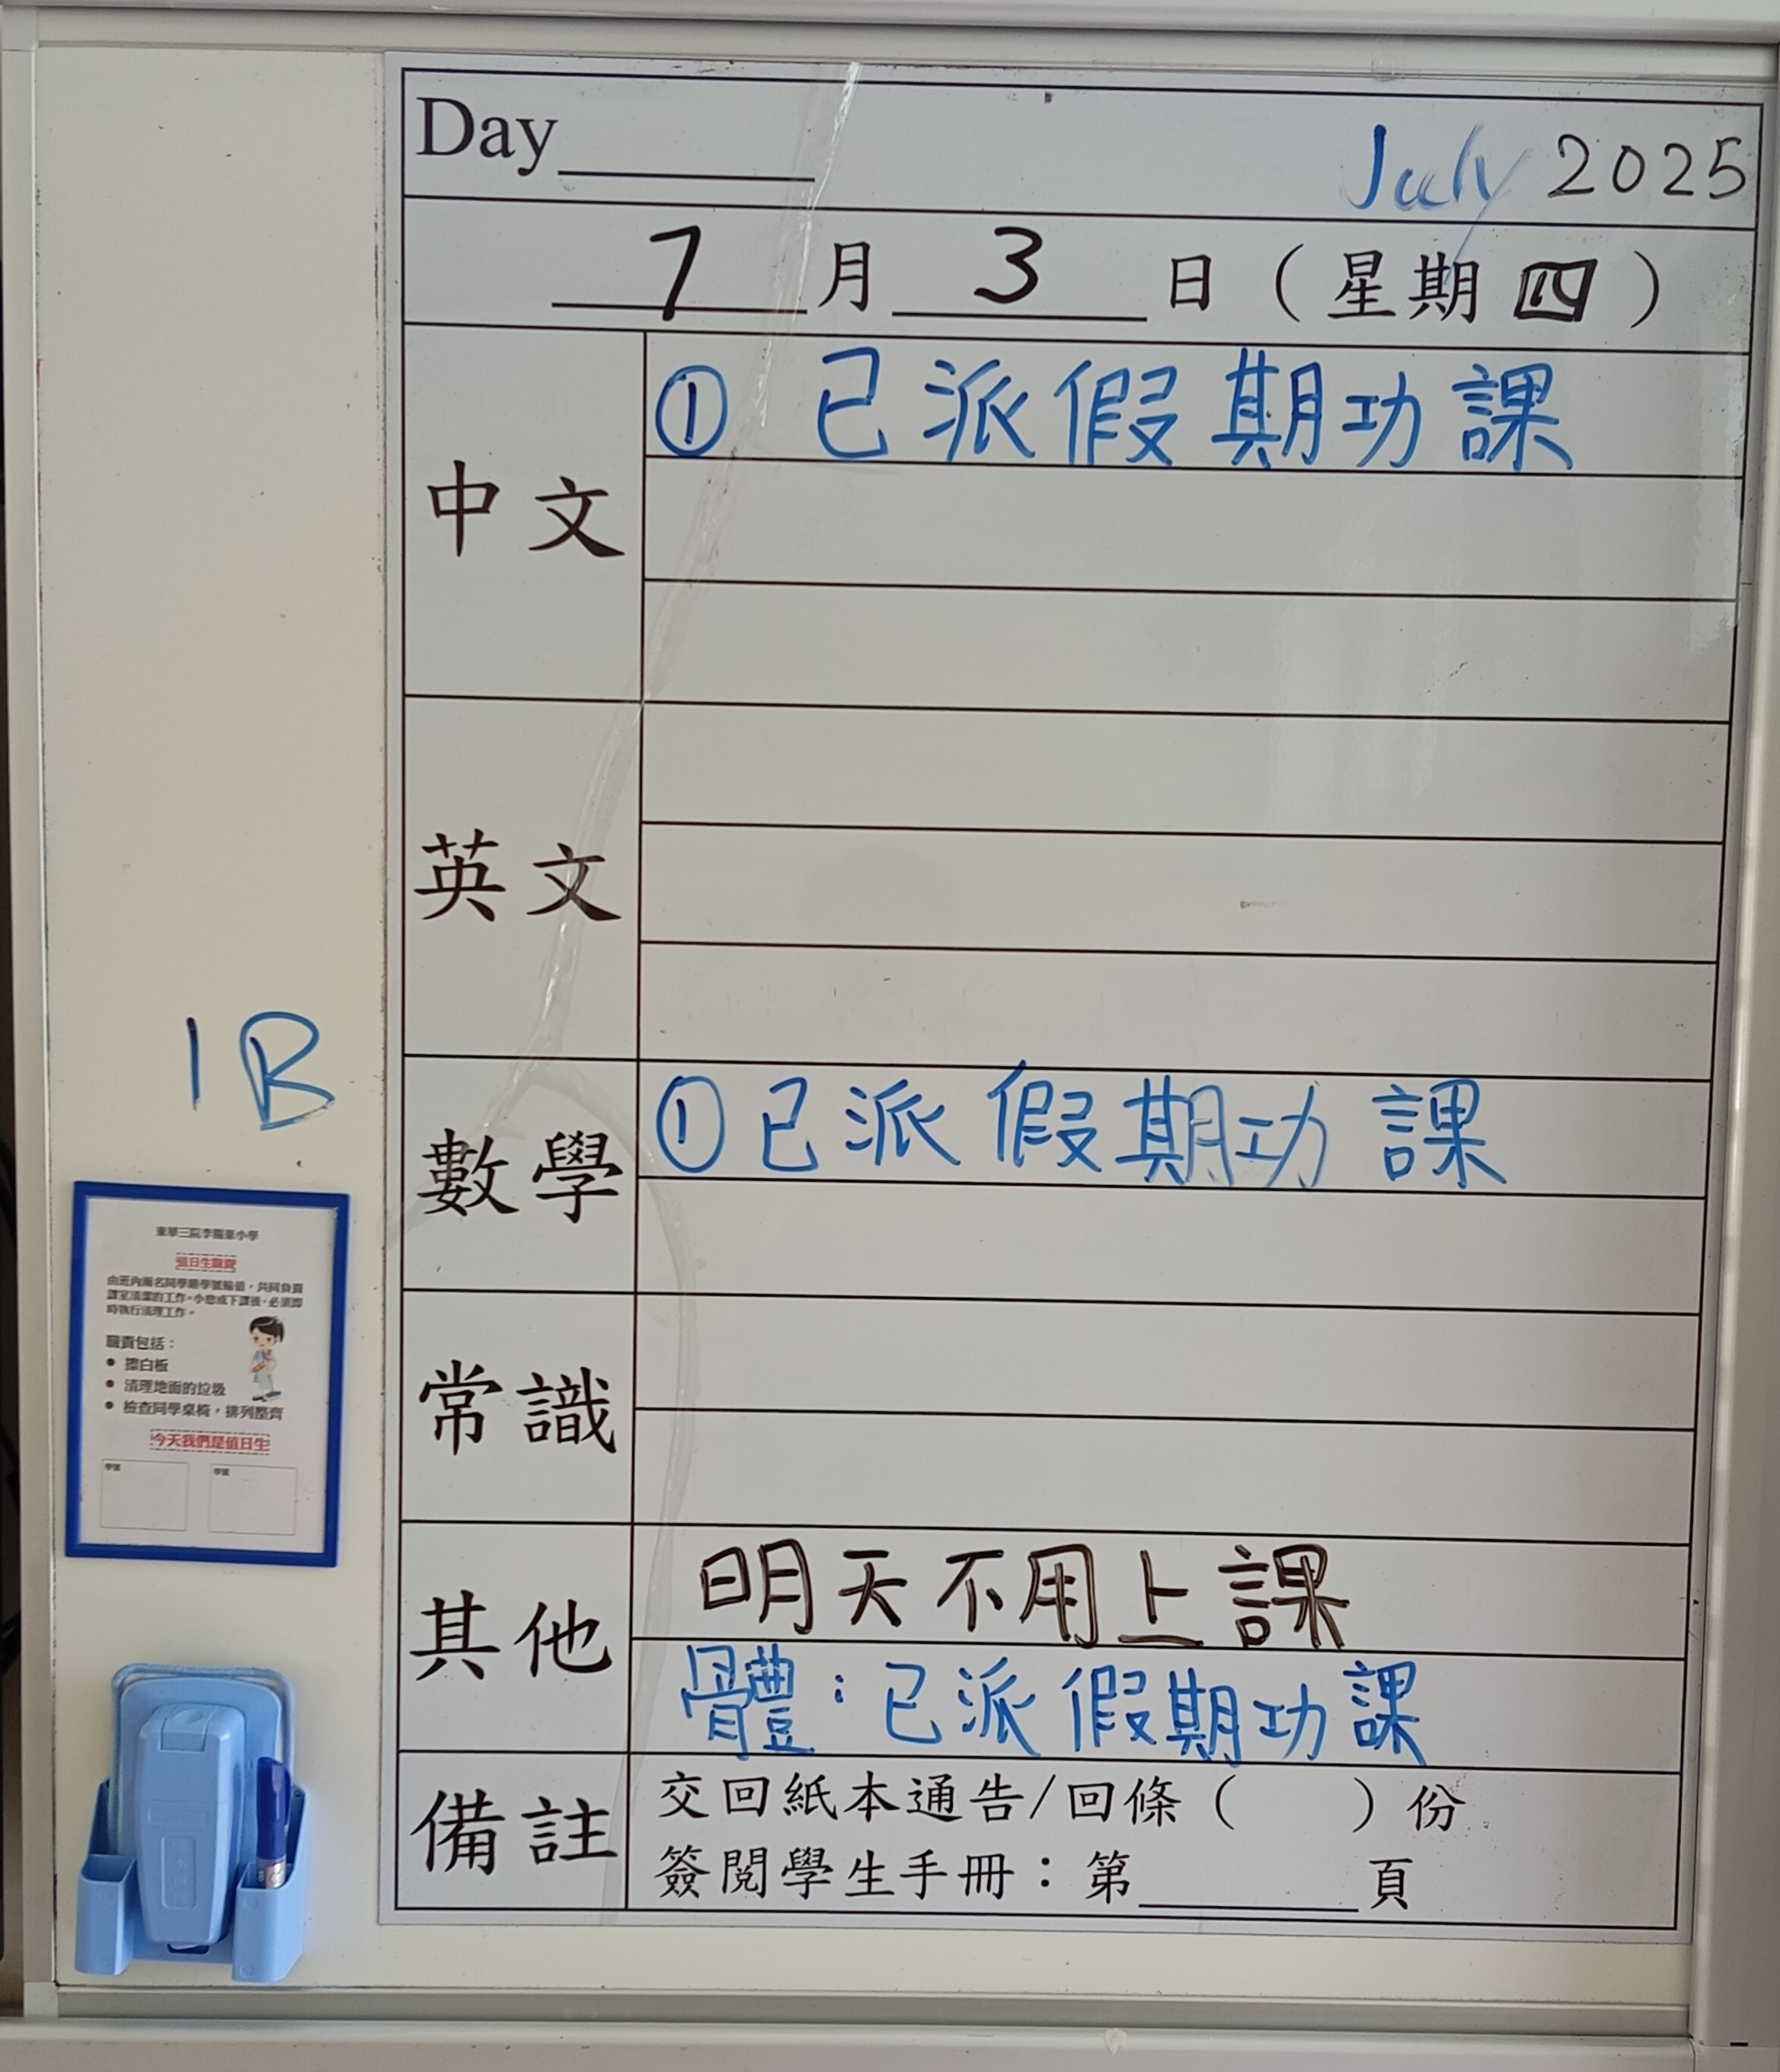 Day
July 2025
7 月 3 日 ( 星期 四 )
中文
① 已派假期功課
英文
數學
① 已派假期功課
常識
其他
明天不用上課
體：已派假期功課
備註
交回紙本通告/回條 ( ) 份
簽閱學生手冊：第 頁
1B
值日生職責
由班內兩名同學順學號輪值，共同負責
課室清潔的工作。小息或下課後，必須即
時執行清理工作。
職責包括：
● 擦白板
● 清理地面的垃圾
● 檢查同學桌椅，排列整齊
今天我們是值日生
學號 學號